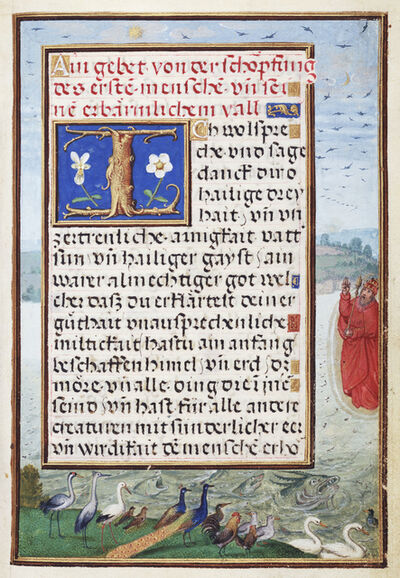 Ain gebet von der schöpffung
des erstē menschē vn̄ sei
nē erbärmlichem vall
Ich wolspre
che vnd sage
danck dir o
hailige drey
hait vn̄ vn
zertrenliche ainigkait vatt
sun vn̄ hailiger gayst ain
warer almechtiger got wel
cher daß du erklärtest deiner
gůthait vnaussprechenliche
miltickait hastu ain anfang
beschaffen himel vn̄ erd dz
möre vn̄ alle ding dre inē
seind vn̄ hast für alle andere
creaturen mit sunderlicher eer
vn̄ wirdikait dē menschē erhö